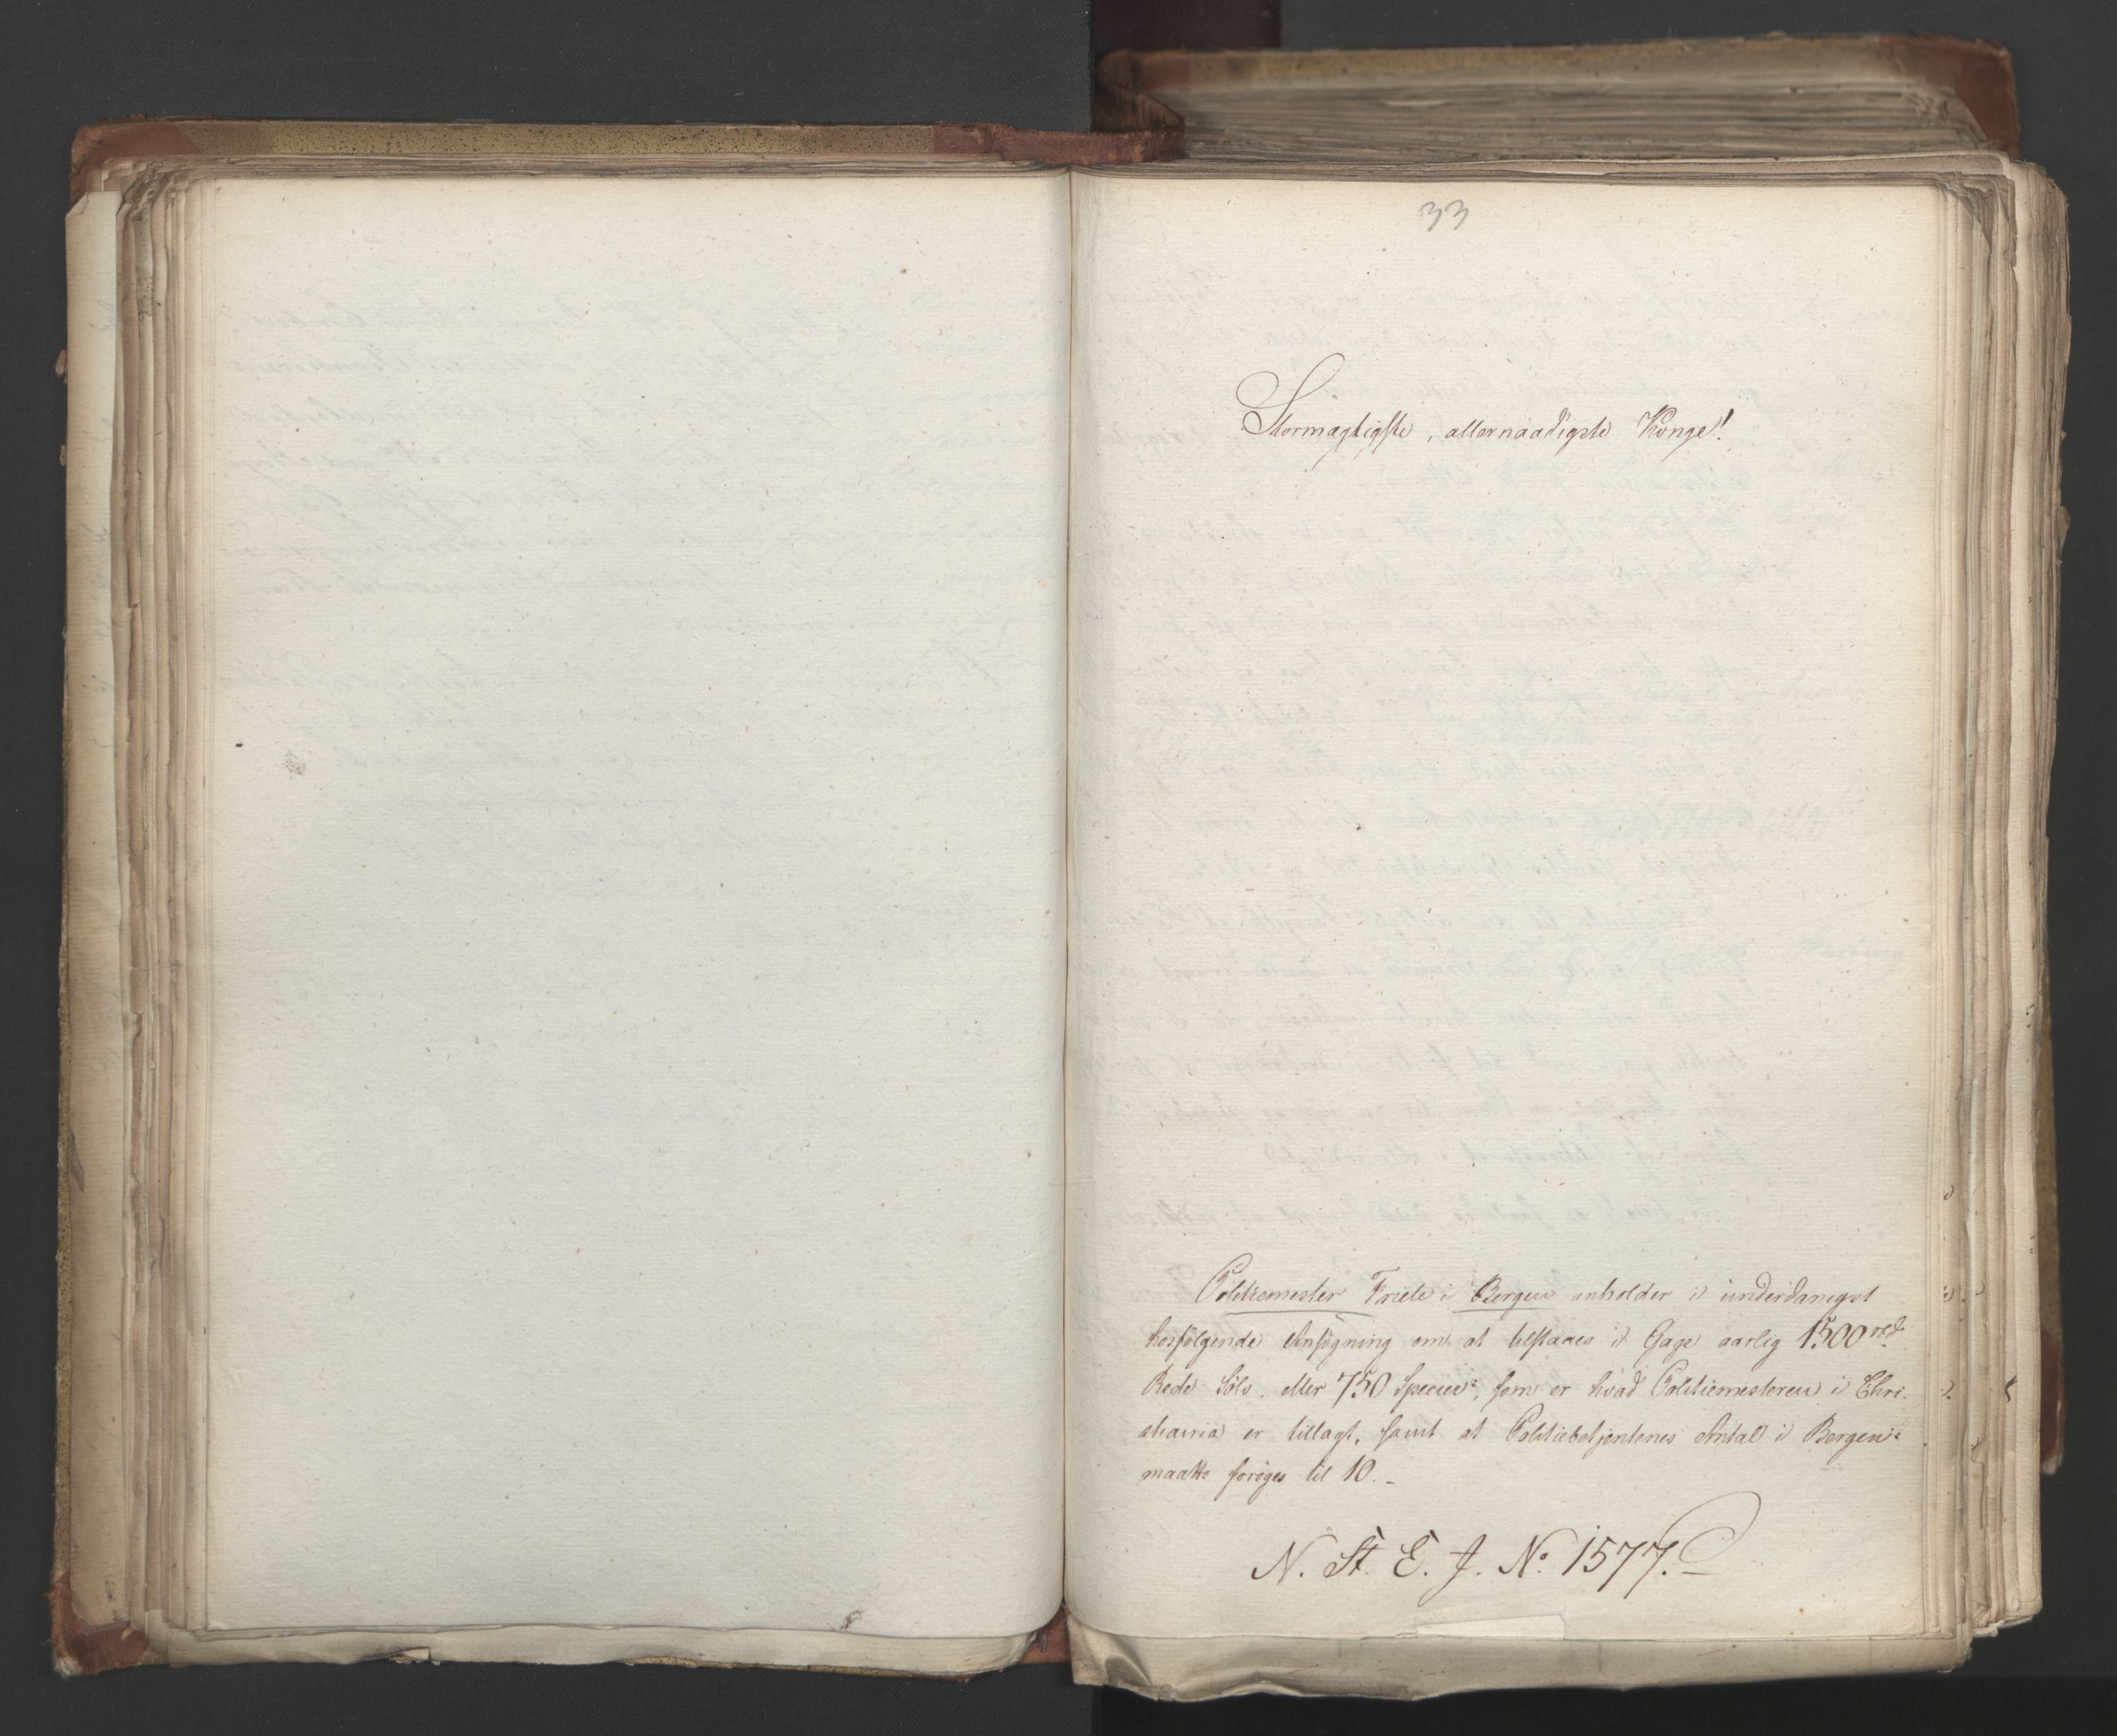 33
Stormægtigste, allernaadigste Konge!
Politiemester Friele i Bergen anholder i underdanigst
hosfølgende Ansøgning om at tilstaaes i Gage aarlig 1500 rbd.
Rede Sølv, eller 750 Species, som er hvad Politiemesteren i Chri-
stiania er tillagt, samt at Politiebetjentenes Antal i Bergen
maatte forøges til 10.
N. St. E. J. No. 1577.